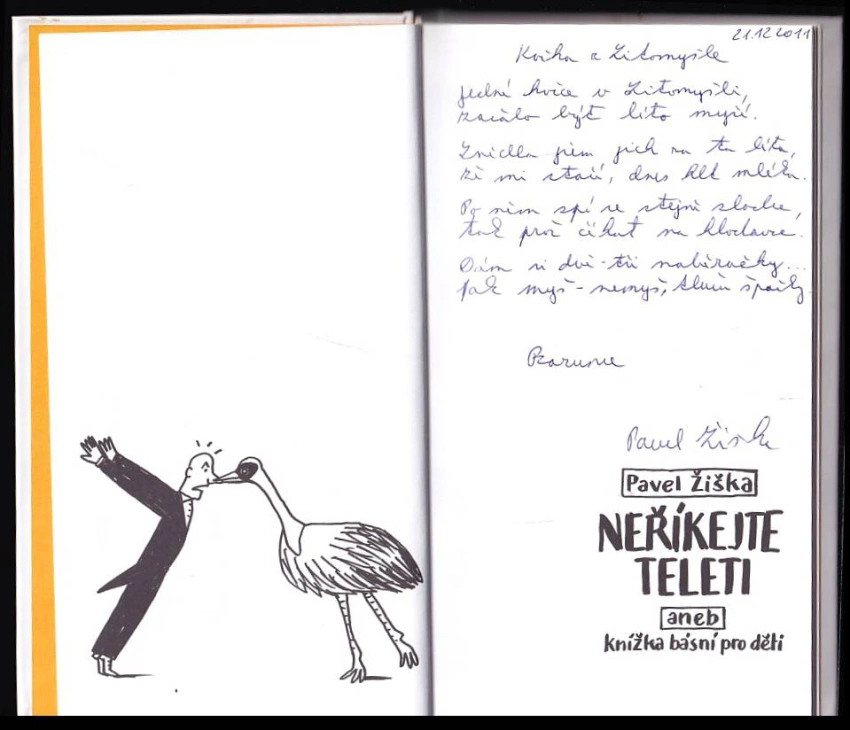 21.12.2011
Kočka z Litomyšle
Jedné kočce v Litomyšli,
začalo být líto myší.
Snědla jsem jich za ta léta,
že mi stačí, dnes hlt mléka.
Po něm spí se stejně sladce,
tak proč číhat na hlodavce.
Dám si dvě-tři naběračky...
Pak myš-nemyš, tluču špačky.
Pavel Žiška
Pavel Žiška
NEŘÍKEJTE
TELETI
aneb
knížka básní pro děti